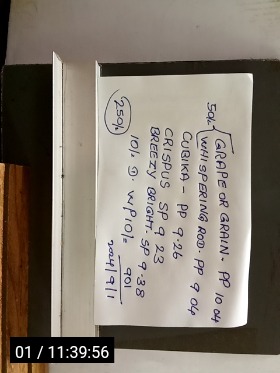 50% GRAPE OR GRAIN. PP 10 04
WHISPERING ROD. PP 9 04
CUBIKA - PP 9.26
CRISPUS SP 9 23
BREEZY BRIGHT. SP 9.38
10% D. W/P 10%
250%
901
2024/9/1
01 / 11:39:56